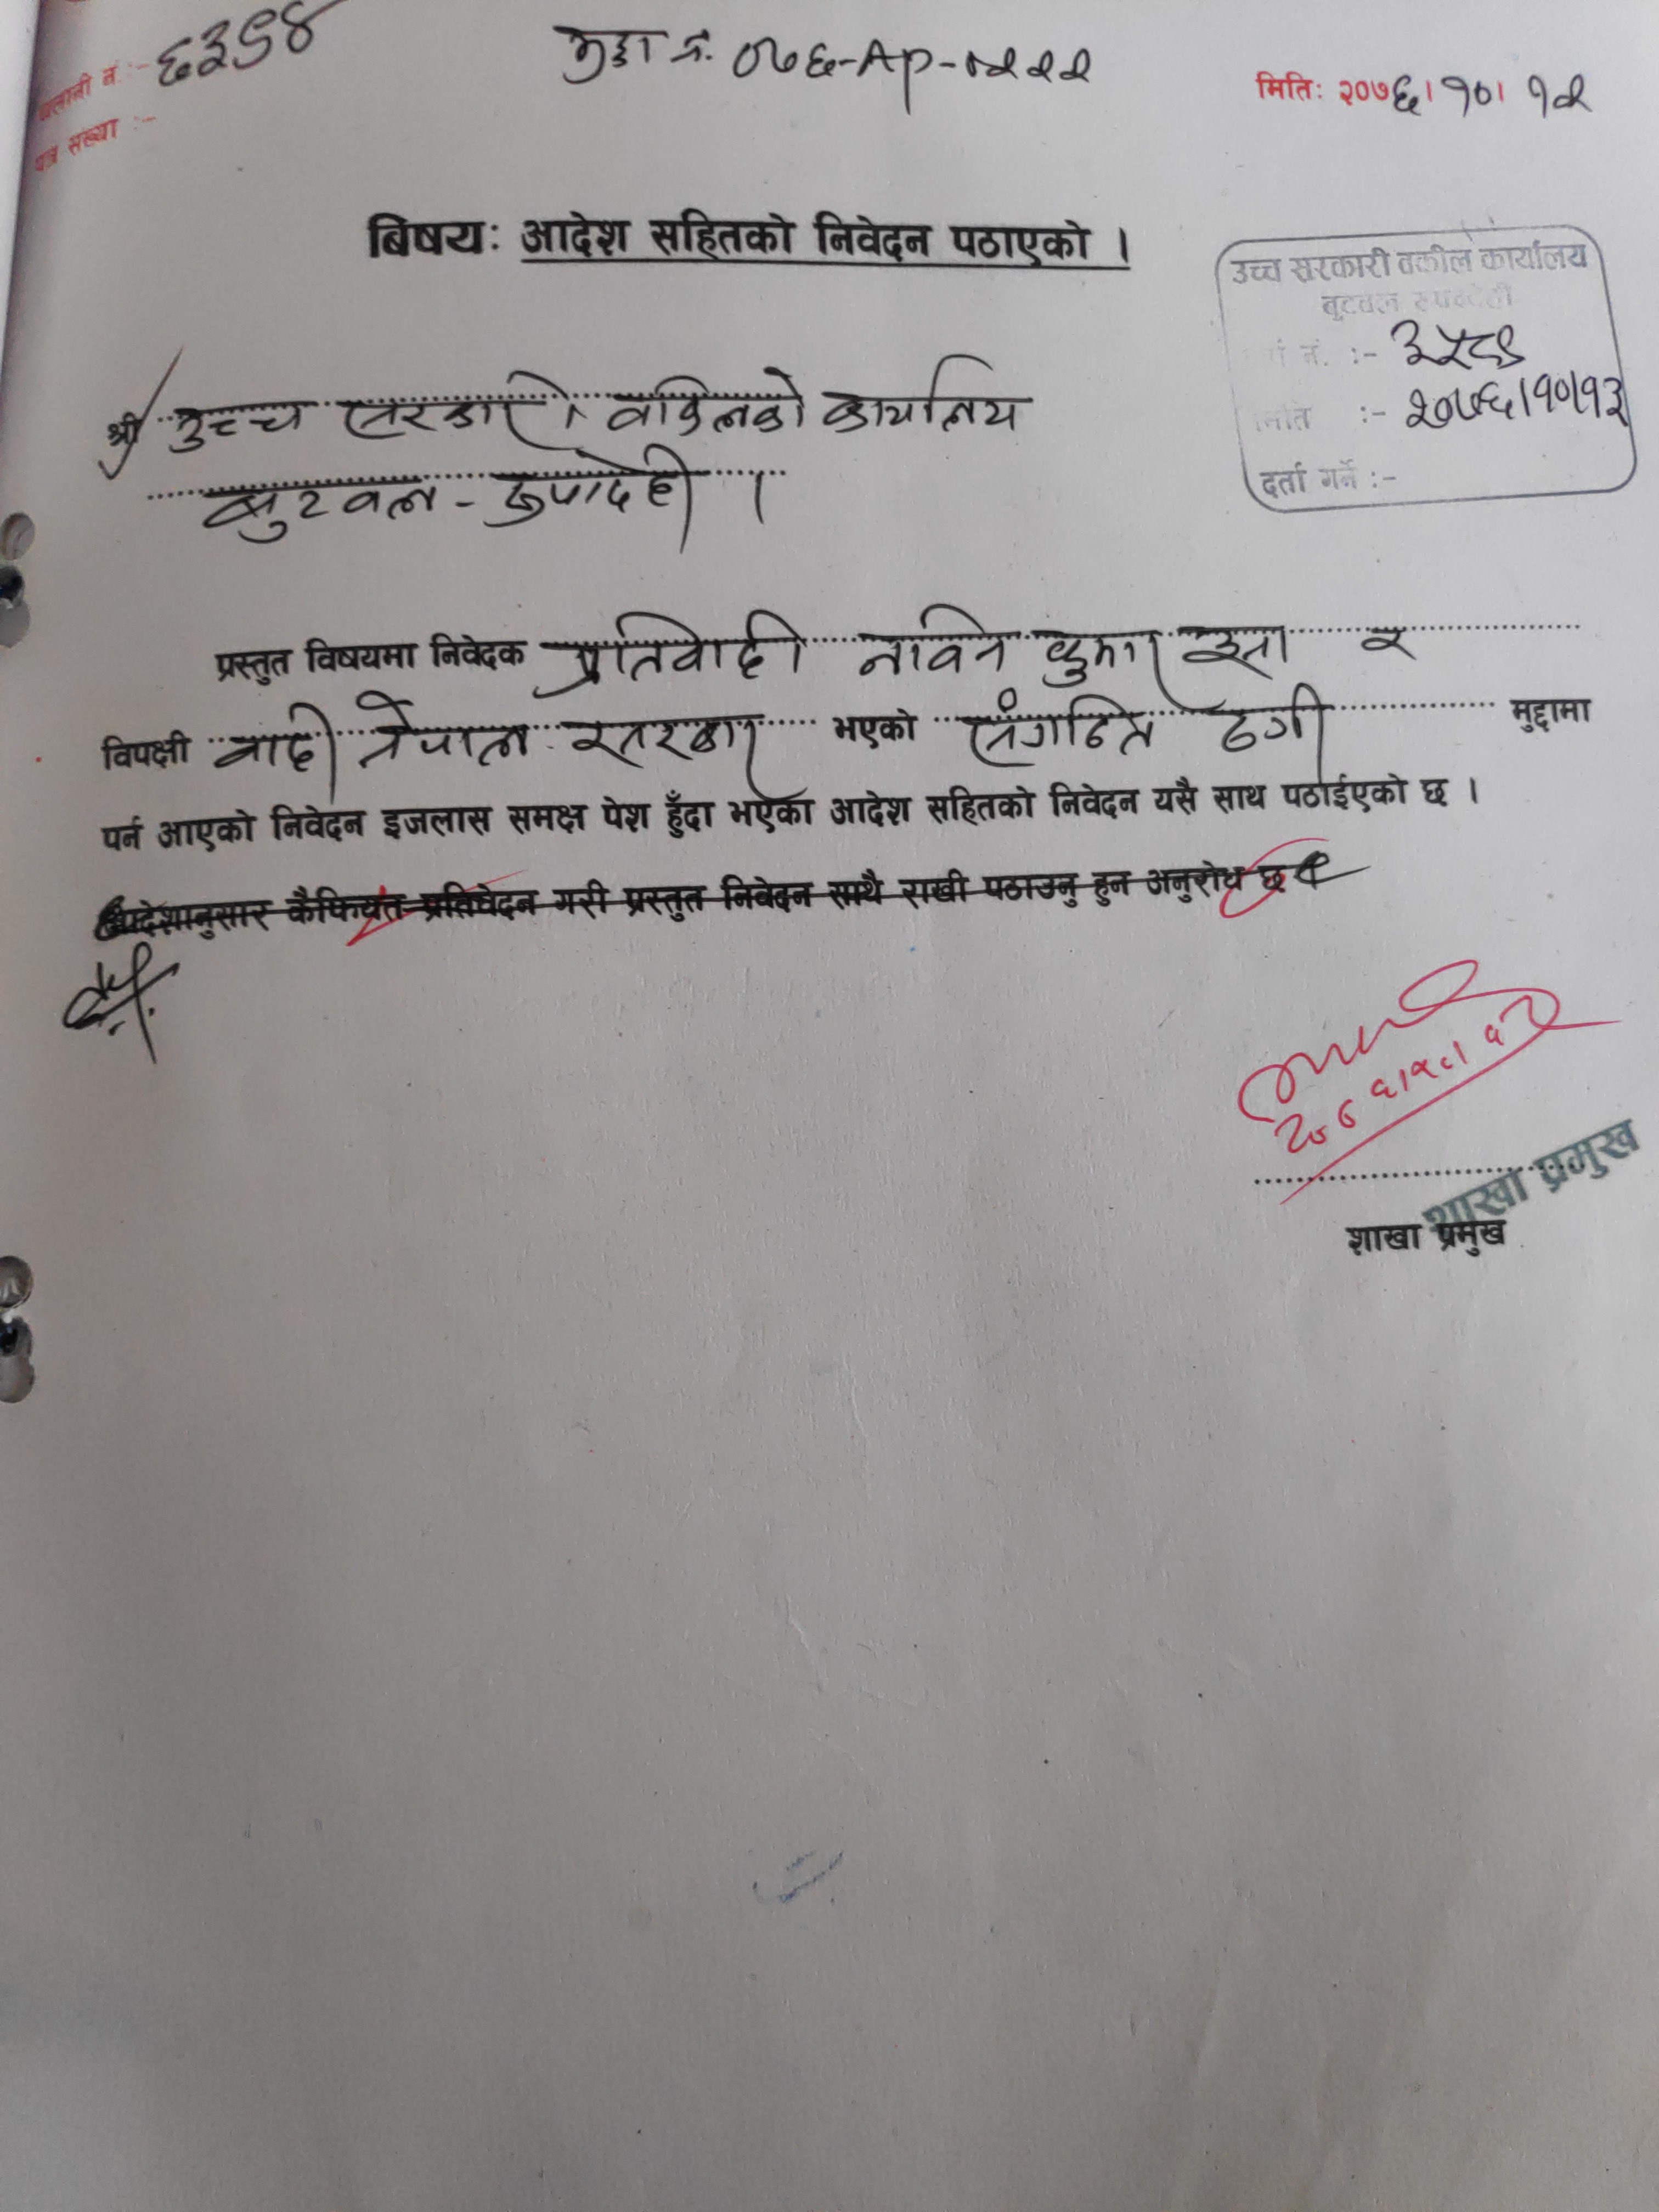 चलानी नं.:- ६३९४
पत्र संख्या :-
मुद्दा नं. ०७६-AP-१२२२
मितिः २०७६।१०।१२
बिषयः आदेश सहितको निवेदन पठाएको ।
उच्च सरकारी वकील कार्यालय
बुटवल रुपन्देही
नं. :- ३५८९
मिति :- २०७६।१०।१३
दर्ता गर्ने :-
श्री उच्च सरकारी वकिलको कार्यालय
बुटवल - रुपन्देही ।
प्रस्तुत विषयमा निवेदक प्रतिवादी नविन कुमार र
विपक्षी वादी नेपाल सरकार भएको संगठित ठगी मुद्दामा
पर्न आएको निवेदन इजलास समक्ष पेश हुँदा भएका आदेश सहितको निवेदन यसै साथ पठाईएको छ ।
आदेशानुसार कैफियत प्रतिवेदन गरी प्रस्तुत निवेदन साथै राखी पठाउनु हुन अनुरोध छ ।
शाखा प्रमुख
शाखा प्रमुख